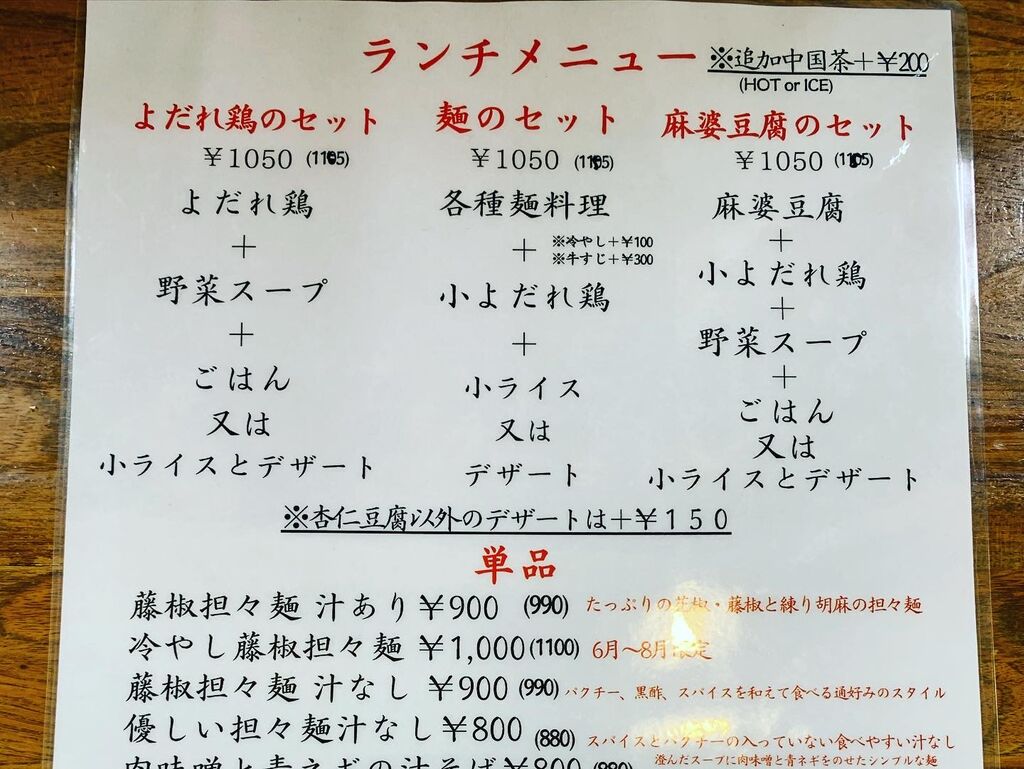 ランチメニュー ※追加中国茶＋￥200
(HOT or ICE)
よだれ鶏のセット
￥1050
よだれ鶏
＋
野菜スープ
＋
ごはん
又は
小ライスとデザート
麺のセット
￥1050
各種麺料理
＋ ※冷やし＋￥100
※牛すじ＋￥300
小よだれ鶏
＋
小ライス
又は
デザート
麻婆豆腐のセット
￥1050
麻婆豆腐
＋
小よだれ鶏
＋
野菜スープ
＋
ごはん
又は
小ライスとデザート
※杏仁豆腐以外のデザートは＋￥１５０
単品
藤椒担々麺 汁あり ￥900 (990) たっぷりの花椒・藤椒と練り胡麻の担々麺
冷やし藤椒担々麺 ￥1,000 (1100) 6月～8月限定
藤椒担々麺 汁なし ￥900 (990) パクチー、黒酢、スパイスを和えて食べる通好みのスタイル
優しい担々麺汁なし ￥800 (880) スパイスとパクチーの入っていない食べやすい汁なし
肉味噌と青ネギの汁そば ￥800 (880) 澄んだスープに肉味噌と青ネギをのせたシンプルな麺